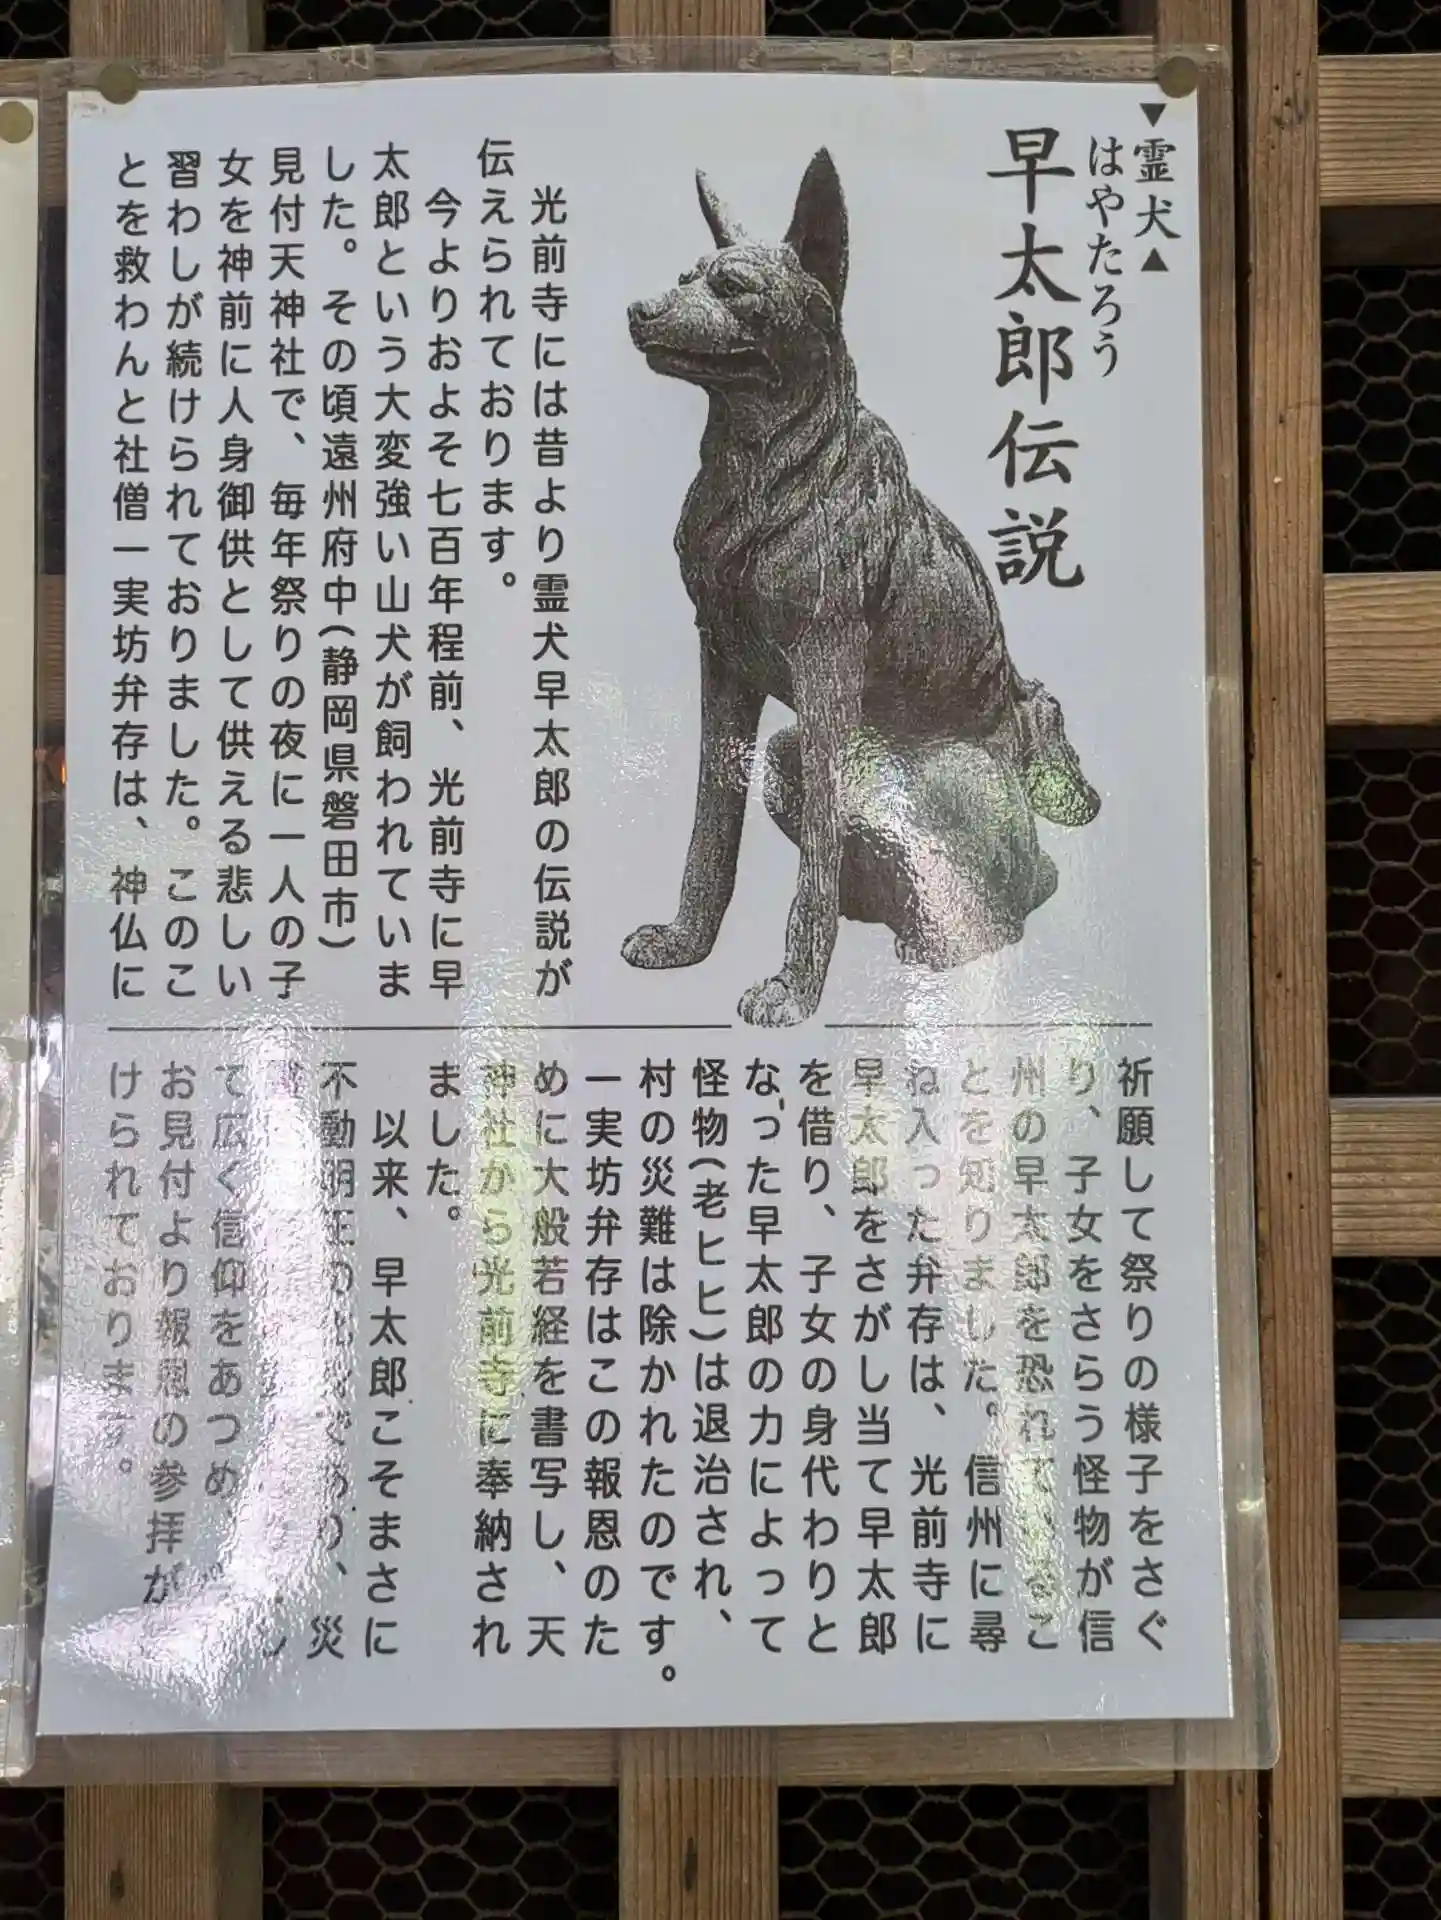 ▼霊犬▲
はやたろう
早太郎伝説
光前寺には昔より霊犬早太郎の伝説が
伝えられております。
今よりおよそ七百年程前、光前寺に早
太郎という大変強い山犬が飼われていま
した。その頃遠州府中(静岡県磐田市)
見付天神社で、毎年祭りの夜に一人の子
女を神前に人身御供として供える悲しい
習わしが続けられておりました。このこ
とを救わんと社僧一実坊弁存は、神仏に
祈願して祭りの様子をさぐ
り、子女をさらう怪物が信
州の早太郎を恐れているこ
とを知りました。信州に尋
ね入った弁存は、光前寺に
早太郎をさがし当て早太郎
を借り、子女の身代わりと
なった早太郎の力によって
怪物(老ヒヒ)は退治され、
村の災難は除かれたのです。
一実坊弁存はこの報恩のた
めに大般若経を書写し、天
神社から光前寺に奉納され
ました。
以来、早太郎こそまさに
不動明王の であり、災
て広く信仰をあつめ
お見付より報恩の参拝が
けられております。